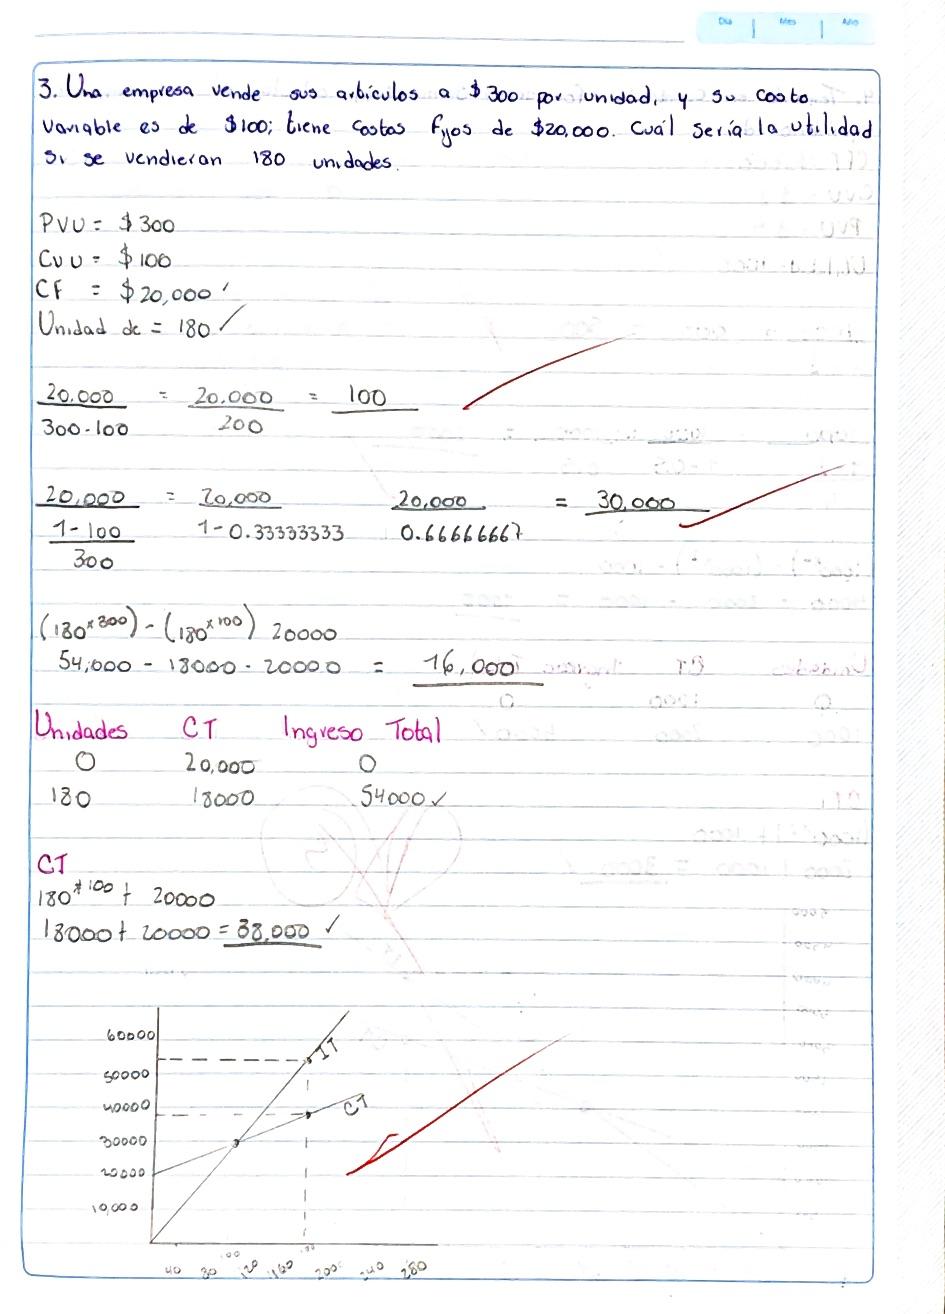 Dia Mes Año
3. Una empresa vende sus articulos a $300 por unidad, y su costo
variable es de $100; tiene costos fijos de $20,000. Cuál sería la utilidad
Si se vendieran 180 unidades.
PVU = $300
CVU = $100
CF = $20,000
Unidad de = 180 ✓
20,000 = 20,000 = 100
300-100 200
20,000 = 20,000 20,000 = 30,000
1-100 1-0.33333333 0.66666667
300
(180x300) - (180x100) 20000
54,000 - 18000 - 20000 = 16,000
Unidades CT Ingreso Total
0 20,000 0
180 18000 54000 ✓
CT
180*100 + 20000
18000 + 20000 = 38,000 ✓
60000
IT
50000
40000
CT
30000
20000
10,000
100 180
40 80 120 160 200 240 280